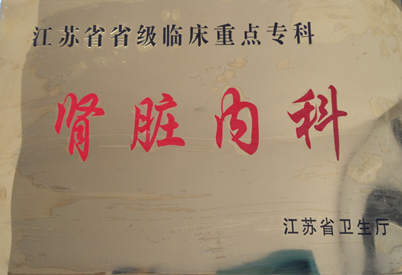 江苏省省级临床重点专科
肾脏内科
江苏省卫生厅